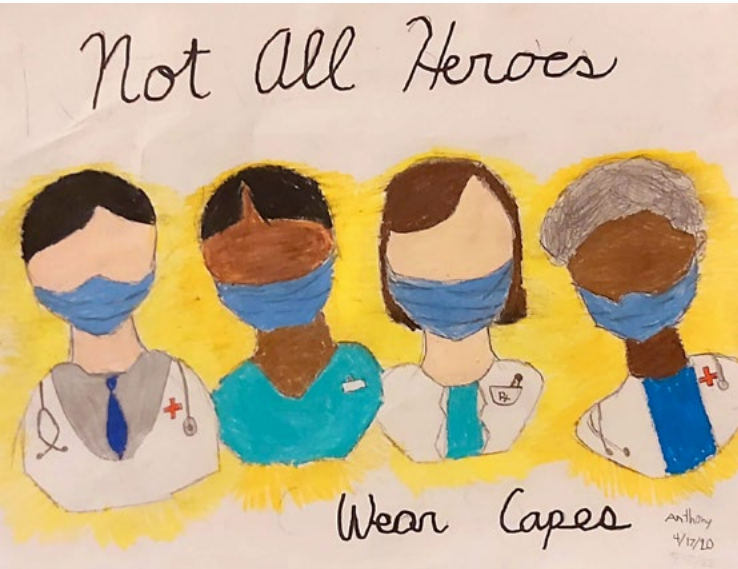 Not All Heroes
Rx
Wear Capes
Anthony
4/17/20